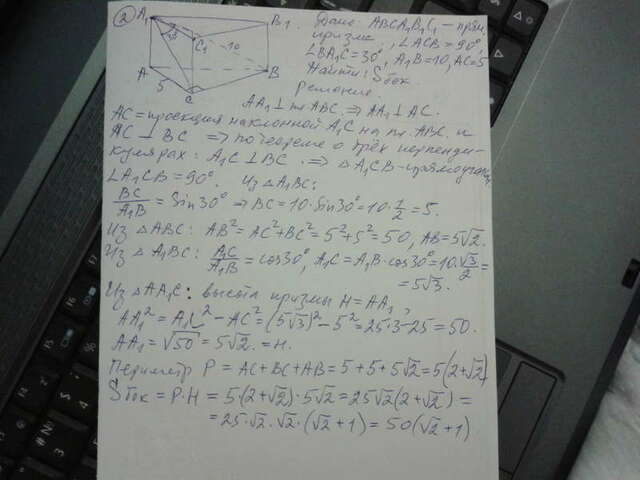 2 A₁ B₁ Дано: ABCA₁B₁C₁ – прям.
призма, ∠ACB = 90°,
30° C₁ 10 ∠BA₁C = 30°, A₁B = 10, AC = 5
A B Найти: Sбок
5 C Решение
AA₁ ⊥ пл. ABC ⇒ AA₁ ⊥ AC.
AC = проекция наклонной A₁C на пл. ABC и
AC ⊥ BC ⇒ по теореме о трёх перпенди-
кулярах: A₁C ⊥ BC ⇒ △A₁CB – прямоугольн,
∠A₁CB = 90°. Из △A₁BC:
BC/A₁B = Sin30° ⇒ BC = 10·Sin30° = 10·1/2 = 5.
Из △ABC: AB² = AC² + BC² = 5² + 5² = 50, AB = 5√2.
Из △A₁BC: A₁C/A₁B = cos30°, A₁C = A₁B·cos30° = 10·√3/2 =
= 5√3.
Из △AA₁C: высота призмы H = AA₁,
AA₁² = A₁C² – AC² = (5√3)² – 5² = 25·3 – 25 = 50.
AA₁ = √50 = 5√2 = H.
Периметр P = AC + BC + AB = 5 + 5 + 5√2 = 5(2+√2)
Sбок = P·H = 5(2+√2)·5√2 = 25√2(2+√2) =
= 25·√2·√2·(√2+1) = 50(√2+1)